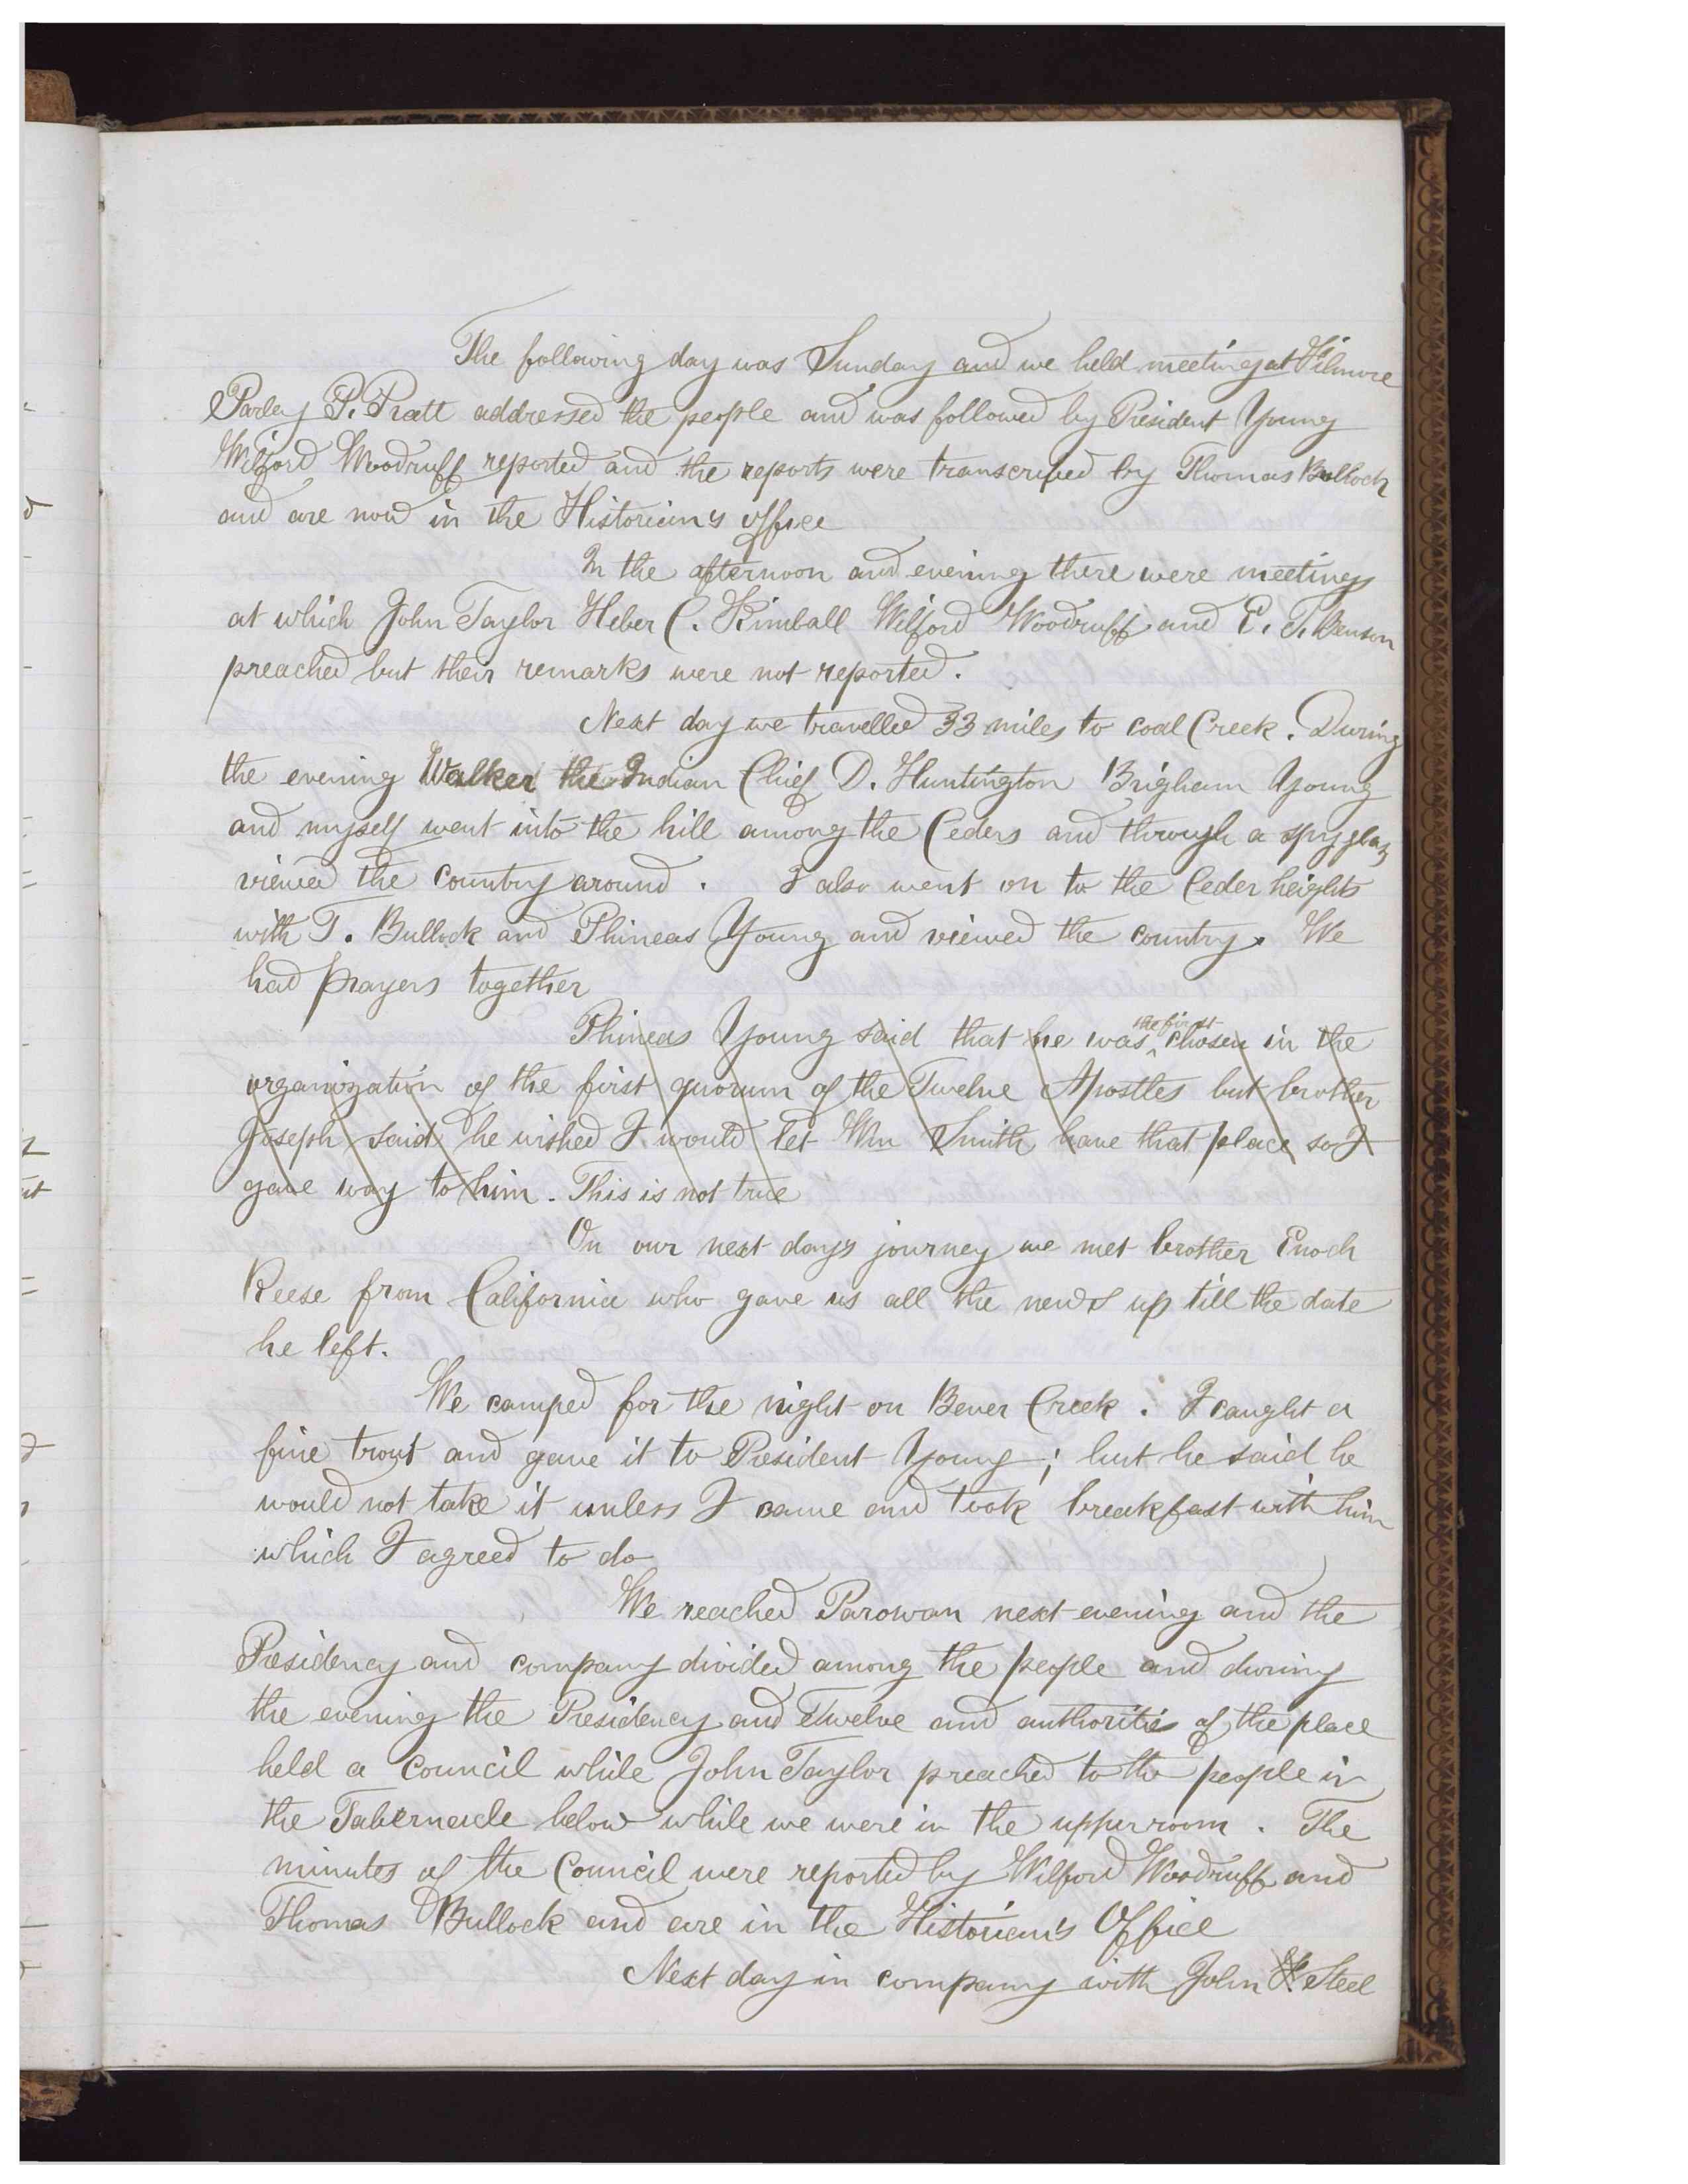 The following day was Sunday and we held meeting at Filmore
Parley P. Pratt addressed the people and was followed by President Young
Wilford Woodruff reported and the reports were transcribed by Thomas Bullock
and are now in the Historian's office
In the afternoon and evening there were meetings
at which John Taylor Heber C. Kimball Wilford Woodruff and E. T. Benson
preached but their remarks were not reported.
Next day we travelled 33 miles to coal Creek. During
the evening Walker the Indian Chief D. Huntington Brigham Young
and myself went into the hill among the Ceders and through a spy glass
viewed the country around. I also went on to the Ceder heights
with T. Bullock and Phineas Young and viewed the country. We
had prayers together
Phineas Young said that he was the first chosen in the
organization of the first quorum of the Twelve Apostles but brother
Joseph said he wished I would let Wm Smith have that place so I
gave way to him. This is not true
On our next days journey we met brother Enoch
Reese from California who gave us all the news up till the date
he left.
We camped for the night on Bever Creek. I caught a
fine trout and gave it to President Young; but he said he
would not take it unless I came and took breakfast with him
which I agreed to do
We reached Parowan next evening and the
Presidency and company divided among the people and during
the evening the Presidency and Twelve and authorities of the place
held a Council while John Taylor preached to the people in
the Tabernacle below while we were in the upper room. The
minutes of the Council were reported by Wilford Woodruff and
Thomas Bullock and are in the Historian's Office
Next day in company with John Steel